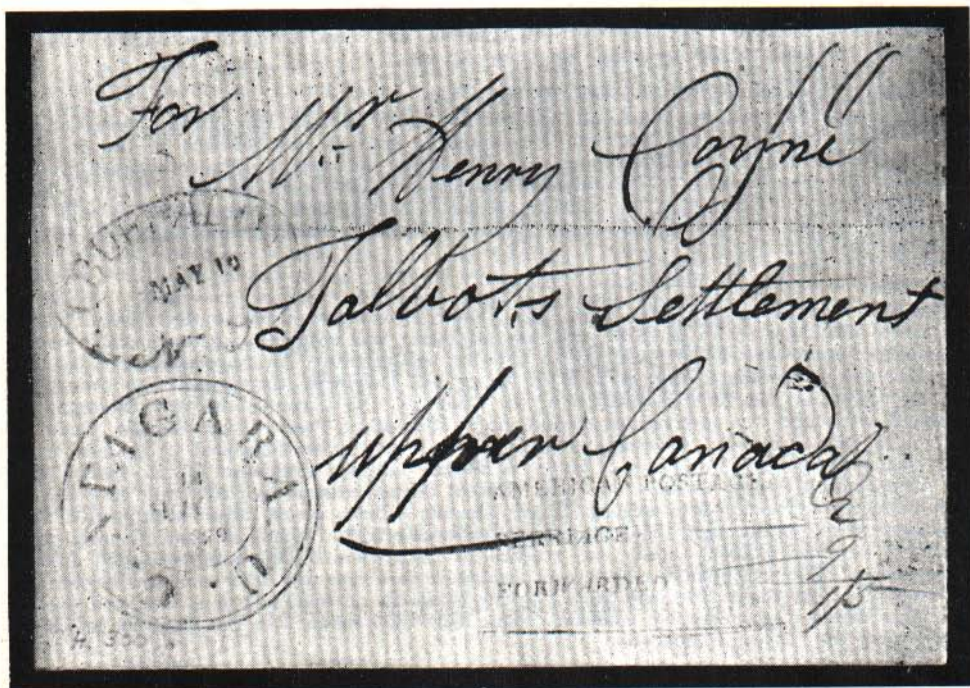 For
Mr. Henry Coyne
Talbots Settlement
upper Canada
BUFFALO
MAY 10
N.Y
NIAGARA U.C.
14
AMERICAN POSTAGE
FERRIAGE
FORWARDED
9